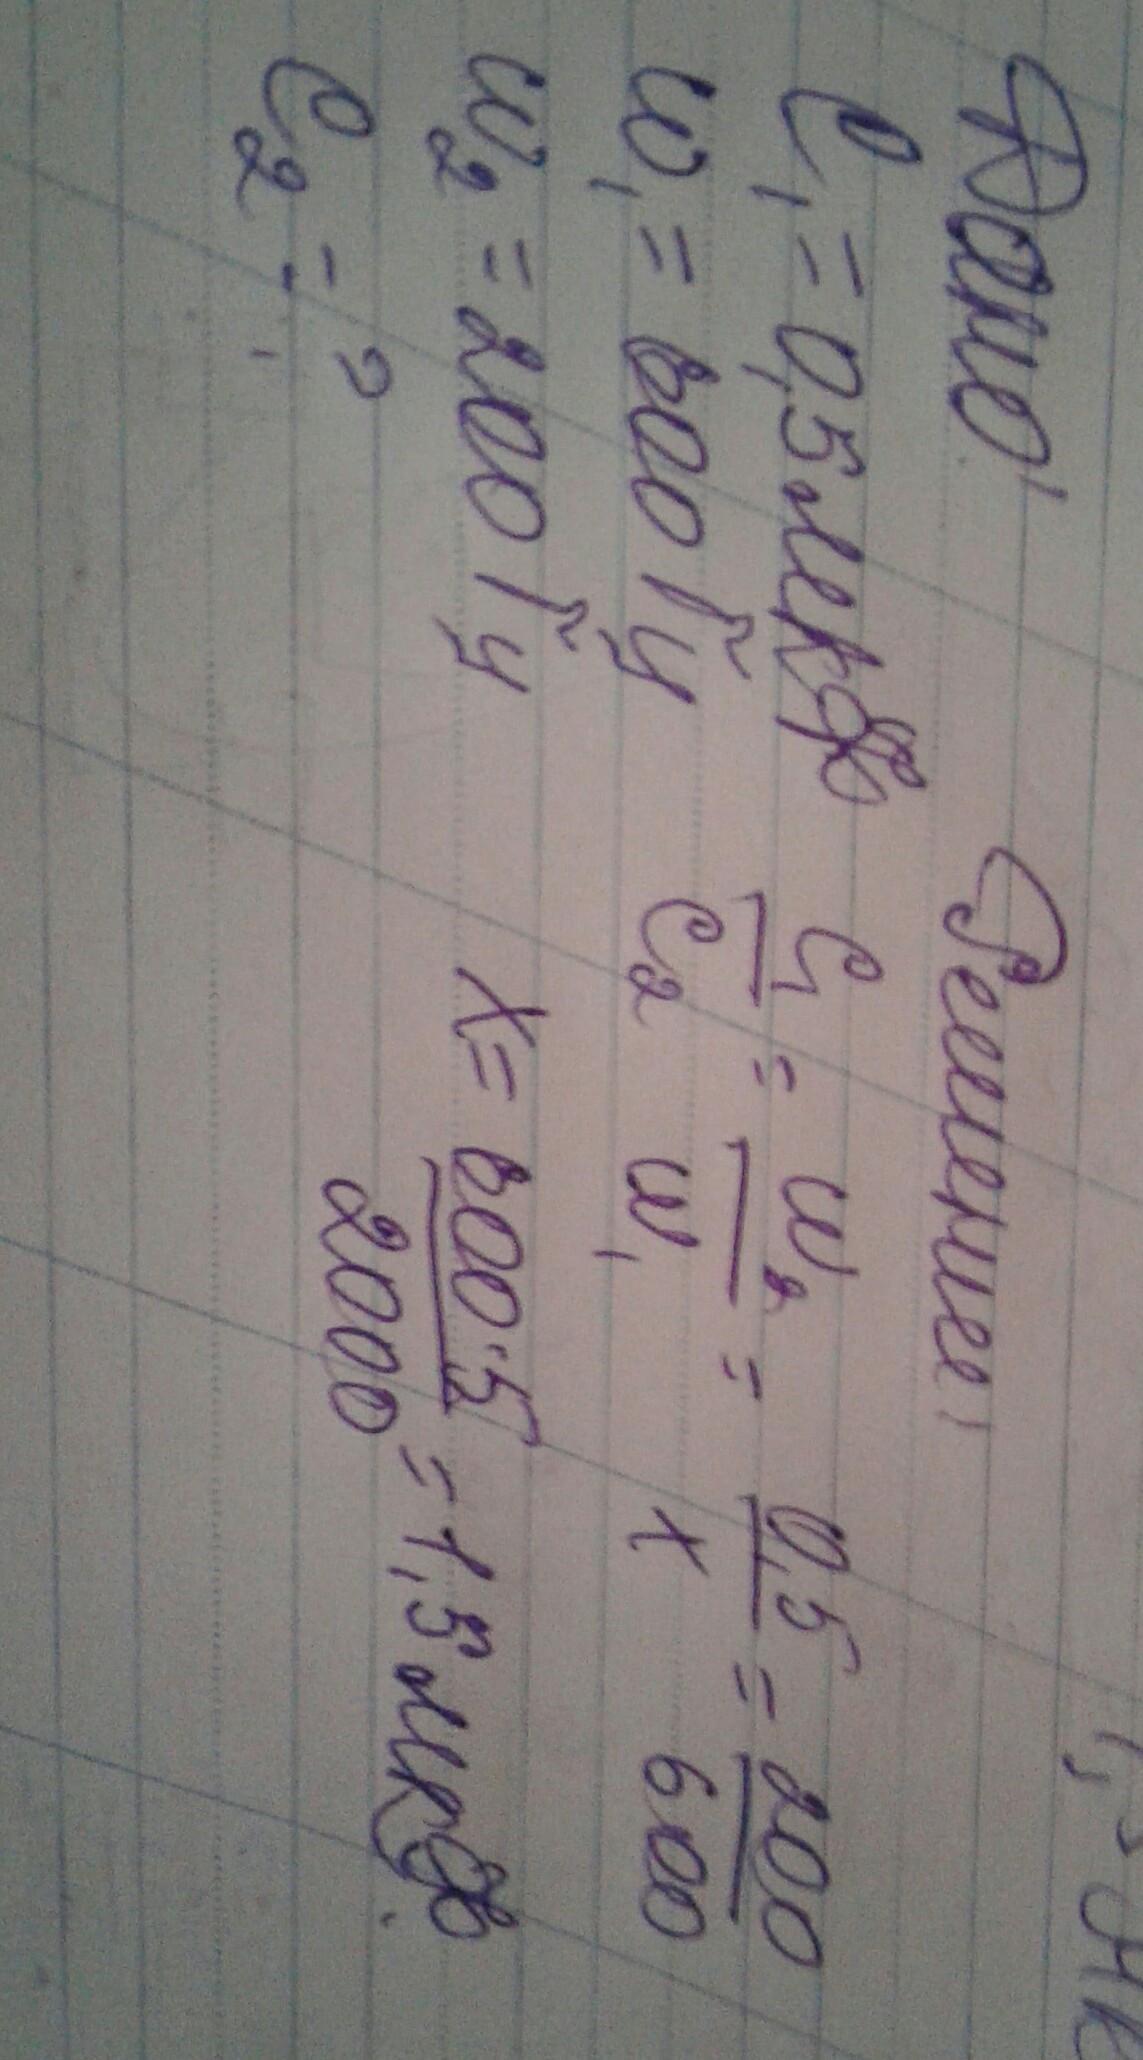 Дано:
C₁ = 0,5 мкф
w₁ = 600 Гц
w₂ = 200 Гц
C₂ = ?
Решение:
C₁/C₂ = w₂/w₁ = 0,5/x = 200/600
x = 600·5/2000 = 1,5 мкф.